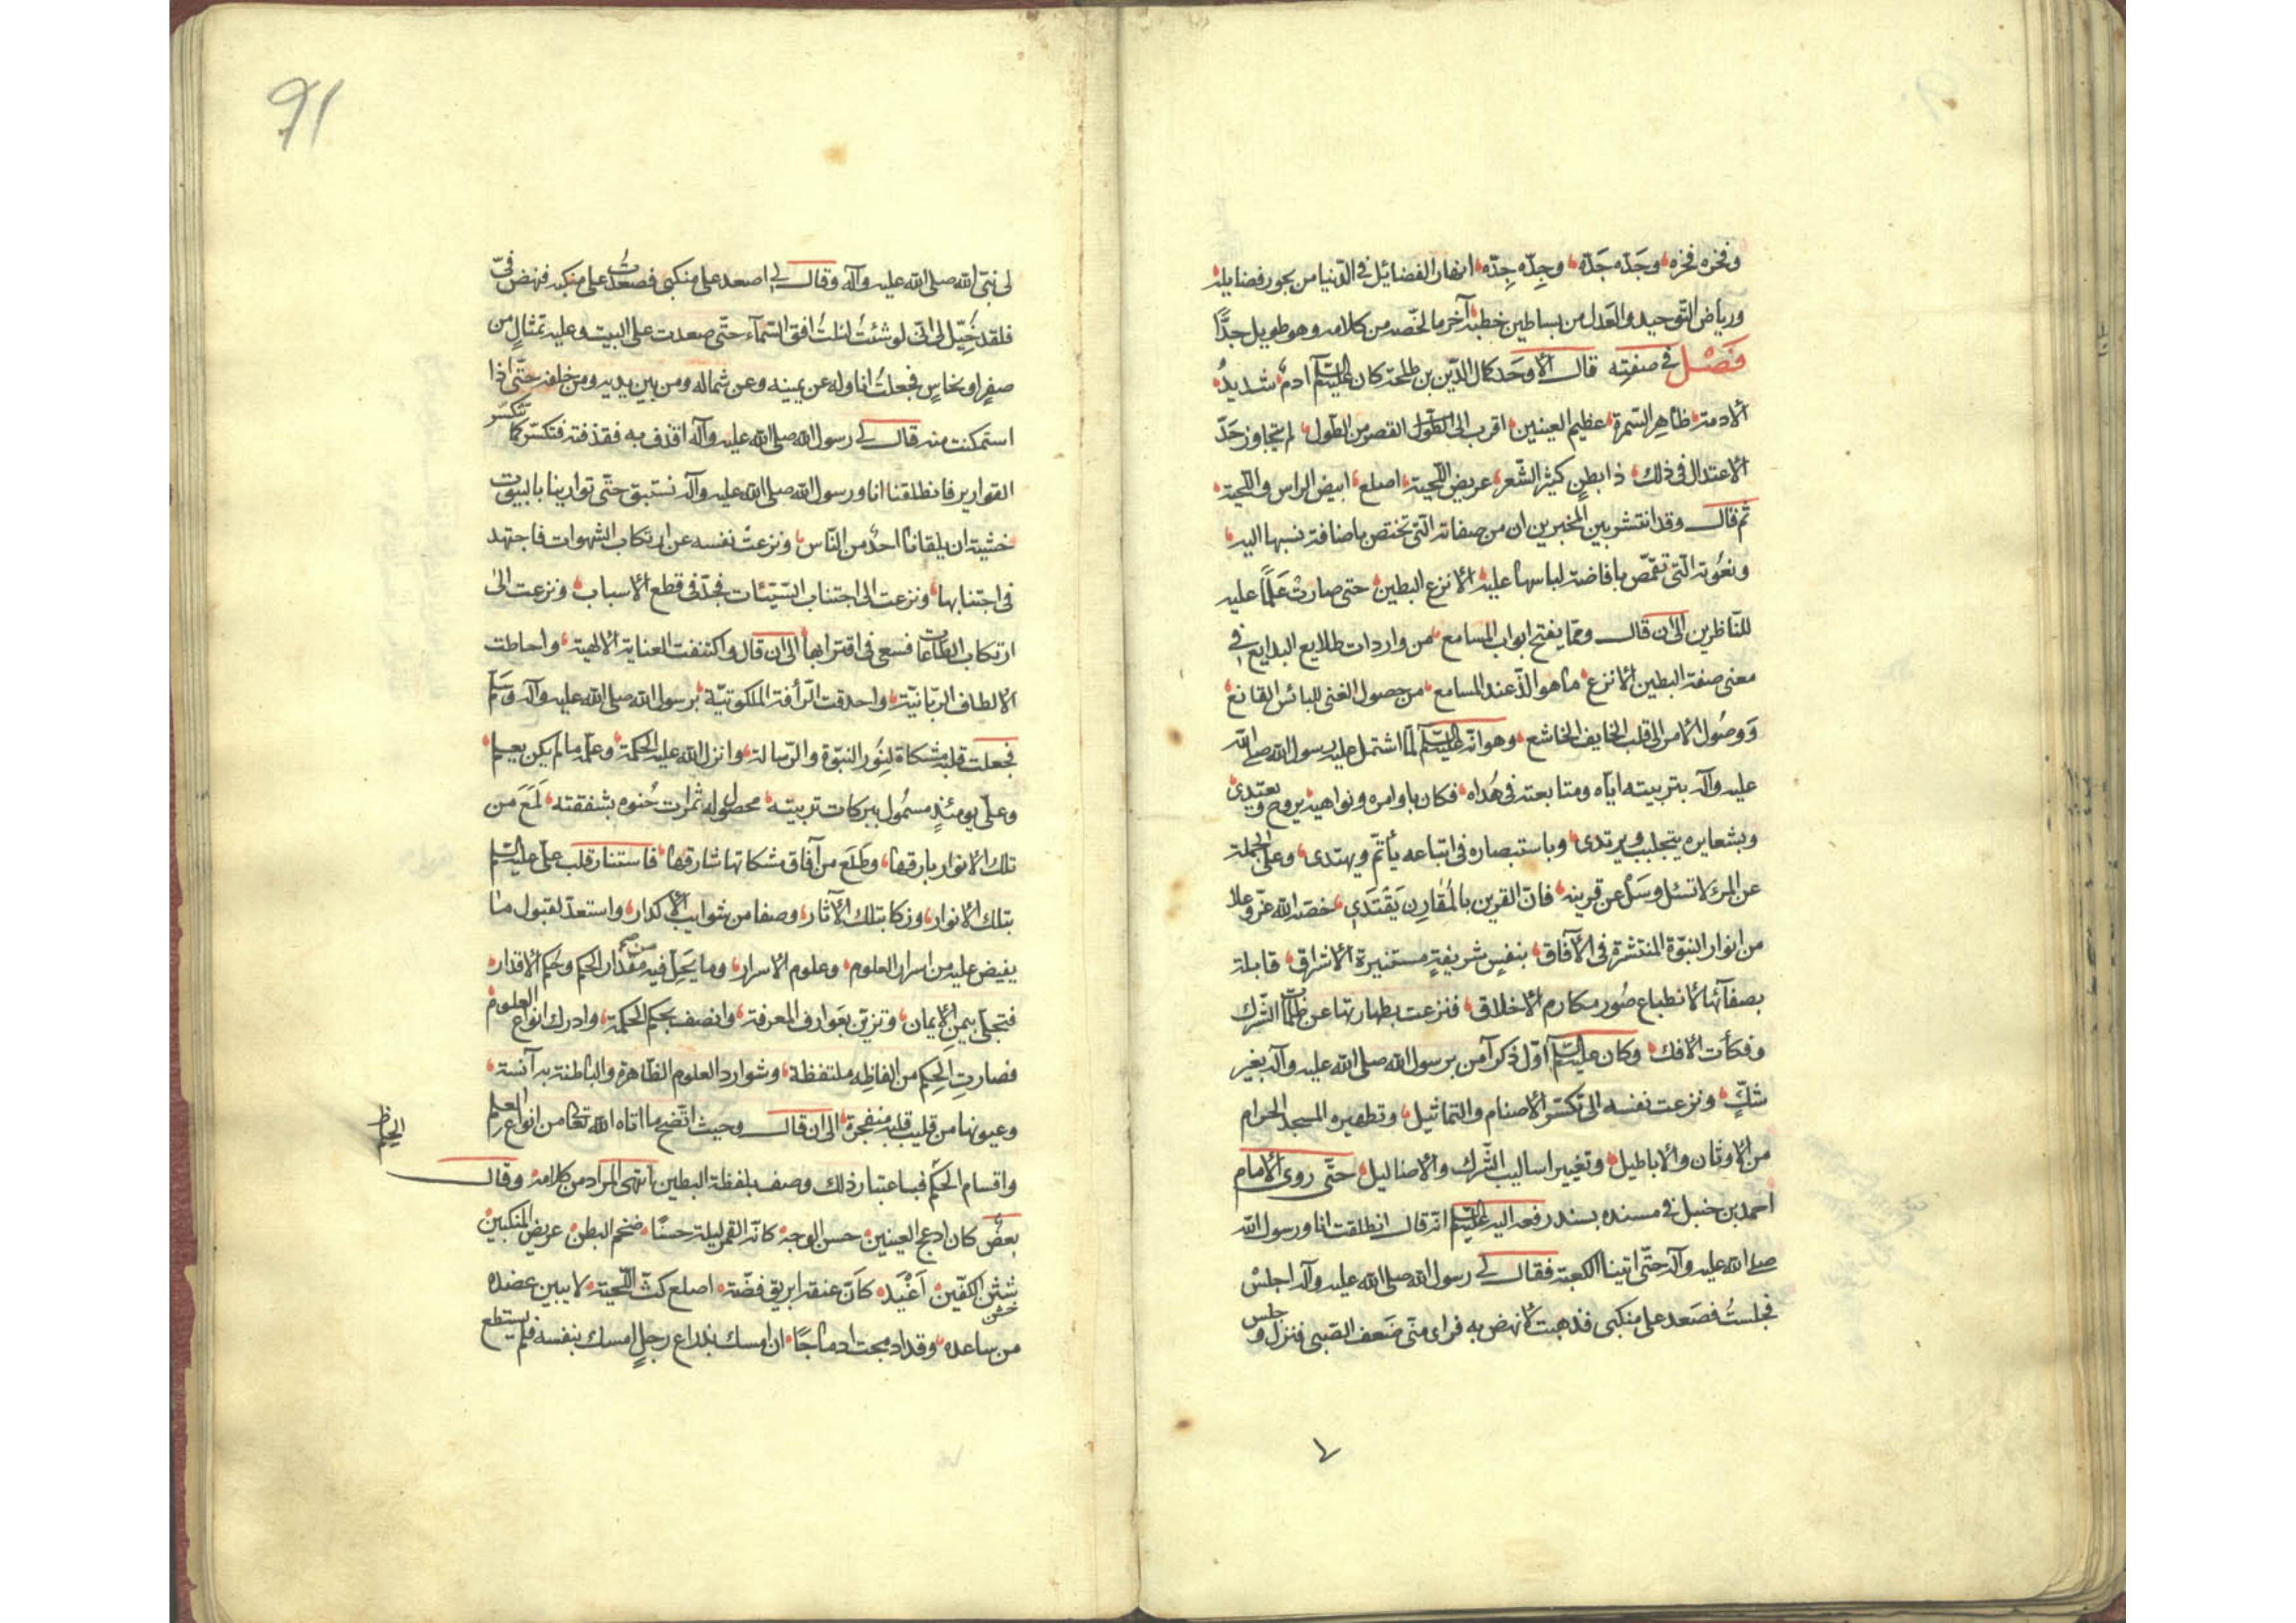 وفخره فخره وجَدّه جَدّه وجِدّه جِدّه انهار الفضائل في الدّنيا من بحور فضايله
ورياض التوحيد والعَدل من بساطين خطبه آخر ما لخّصه من كلامه وهو طويل جدًّا
فَصْل في صفتِه قال الأوحَد كمال الدّين بن طلحة كان عليه السلم آدم شديدُ
الادمة ظاهِر السّمرة عظيم العينين اقرب الى القصر من الطّول لم يتجاوز حَدّ
الاعتدال في ذلك ذا بطنٍ كثير الشّعر عريض اللّحية اصلع ابيض الراس واللّحية
ثم قال وقد انتشر بين المخبرين ان من صفاته الّتي تختص باضافة نسبها اليه
ونعُوته الّتي تقمّص بافاضة لباسها عليه الانزع البطين حتى صارت عَلَمًا عليه
للنّاظرين الى ان قال وممّا يفتح ابواب المسامع من واردات طلايع البدايع في
معنى صفة البطين الانزع ما هو الذّ عند المسامع من حصول الغنى للبائس القانع
وَوصُول الامن الى قلب الخايف الخاشع وهو انّه عليه السلم لمّا اشتمل عليه رسول الله صلى الله
عليه وآله بتربيته ايّاه ومتابعته في هُداه فكان باوامره ونواهيه يروح ويغتدي
وبشعايره يتجلبب ويرتدى وباستبصاره في اتباعه يأتمّ ويهتدى وعلى الجملة
عن المرء لا تسئل وسَل عن قرينه فانّ القرين بالمُقارِن يَقْتَدي خصّه الله عزّ وعلا
من انوار النبوّة المنتشرة في الآفاق بنفسٍ شريفةٍ مستنيرة الاشراق قابلة
بصفآئها لانطباع صُور مكارم الاخلاق فنزعت بطهارتها عن ظلمات الشّرك
وفكأت الافك وكان عليه السلم اوّل ذكر آمن برسول الله صلى الله عليه وآله بغير
شكٍّ ونزعت نفسه الى تكسّر الاصنام والتماثيل وتطهيره المسجد الحرام
من الاوثان والاباطيل وتغيير اساليب الشّرك والاضاليل حتّى روى الامام
احمد بن حنبل في مسنده بسند رفعه اليه عليه السلم انّه قال انطلقت انا ورسول الله
صلى الله عليه وآله حتّى اتينا الكعبة فقال لي رسول الله صلى الله عليه وآله اجلسْ
فجلستُ فصَعد على منكبي فذهبت لانهض به فراى منّى ضَعف الصّبى فنزل وجلس
لى نبيّ الله صلى الله عليه وآله وقال لي اصعد على منكبي فصعدْتُ على منكبه فنهض فيّ
فلقد خُيّل الى انّى لو شئتُ لنلتُ افق السّمآء حتّى صعدت على البيت وعليه تمثال من
صفرٍ او نحاسٍ فجعلتُ اناوله عن يمينه وعن شماله ومن بين يديه ومن خلفه حتّى اذا
استمكنت منه قال لي رسول الله صلى الله عليه وآله اقذف به فقذفته فتكسّر كما تتكسّر
القوارير فانطلقنا انا ورسول الله صلى الله عليه وآله نستبق حتّى توارينا بالبيوت
خشية ان يلقانا احدٌ من النّاس ونزعتْ نفسه عن ارتكاب الشهوات فاجتهد
في اجتنابها ونزعت الى اجتناب السّيّئات فجدّ في قطع الاسباب ونزعت الى
ارتكاب الطّاعات فسعى في اقترابها الى ان قال واكتنفت العناية الالهية واحاطت
الالطاف الربّانيّة واحدقت الرّأفة الملكوتيّة برسول الله صلى الله عليه وآله وسلّم
فجعلت قلبه مشكاة لِنُور النبوّة والرّسالة وانزل الله عليه الحكمة وعلّمه ما لم يكن يعلم
وعلىّ يومئذٍ مشمُول ببركات تربيته محصول له ثمرات حُنوه بشفقته لَمَعَ من
تلك الانوار بارقها وطَلَع من آفاق مشكاتها شارقها فاستنار قلب علىّ عليه السلم
بتلك الانوار وزكا بتلك الآثار وصفا من شوايب الاكدار واستعدّ لقبول ما
يفيض عليه من اسرار العلوم وعلوم الاسرار وما يَحِلّ فيه من مقدار الحكم وحكم الاقدار
فتجلّى بيمن الايمان وتزيّن بعَوارف المعرفة واتصف بحكم الحكمة وادرك انواع العلوم
فصارتِ الحِكم من الفاظه ملتفظة وشوارد العلوم الظّاهرة والباطنة به آنسة
وعيونها من قليب قلبه منفجرة الى ان قال وحيث اتّضح ما اتاه الله تعالى من انواع العلم
الحكم ظ
واقسام الحكم فباعتبار ذلك وصف بلفظة البطين انتهى المراد من كلامه وقال
بعضٌ كان ادعج العينين حسن الوجه كانّه القمر ليلة حسنًا ضخم البطن عريض المنكبين
شثن الكفّين اَغْيَد كاَنّ عنقه ابريق فضّة اصلع كثّ اللّحية لا يبين عضده
خشن
من ساعده وقد ادمجت ادماجًا ان امسك بذراع رجلٍ امسك بنفسه فلم يستطع
91